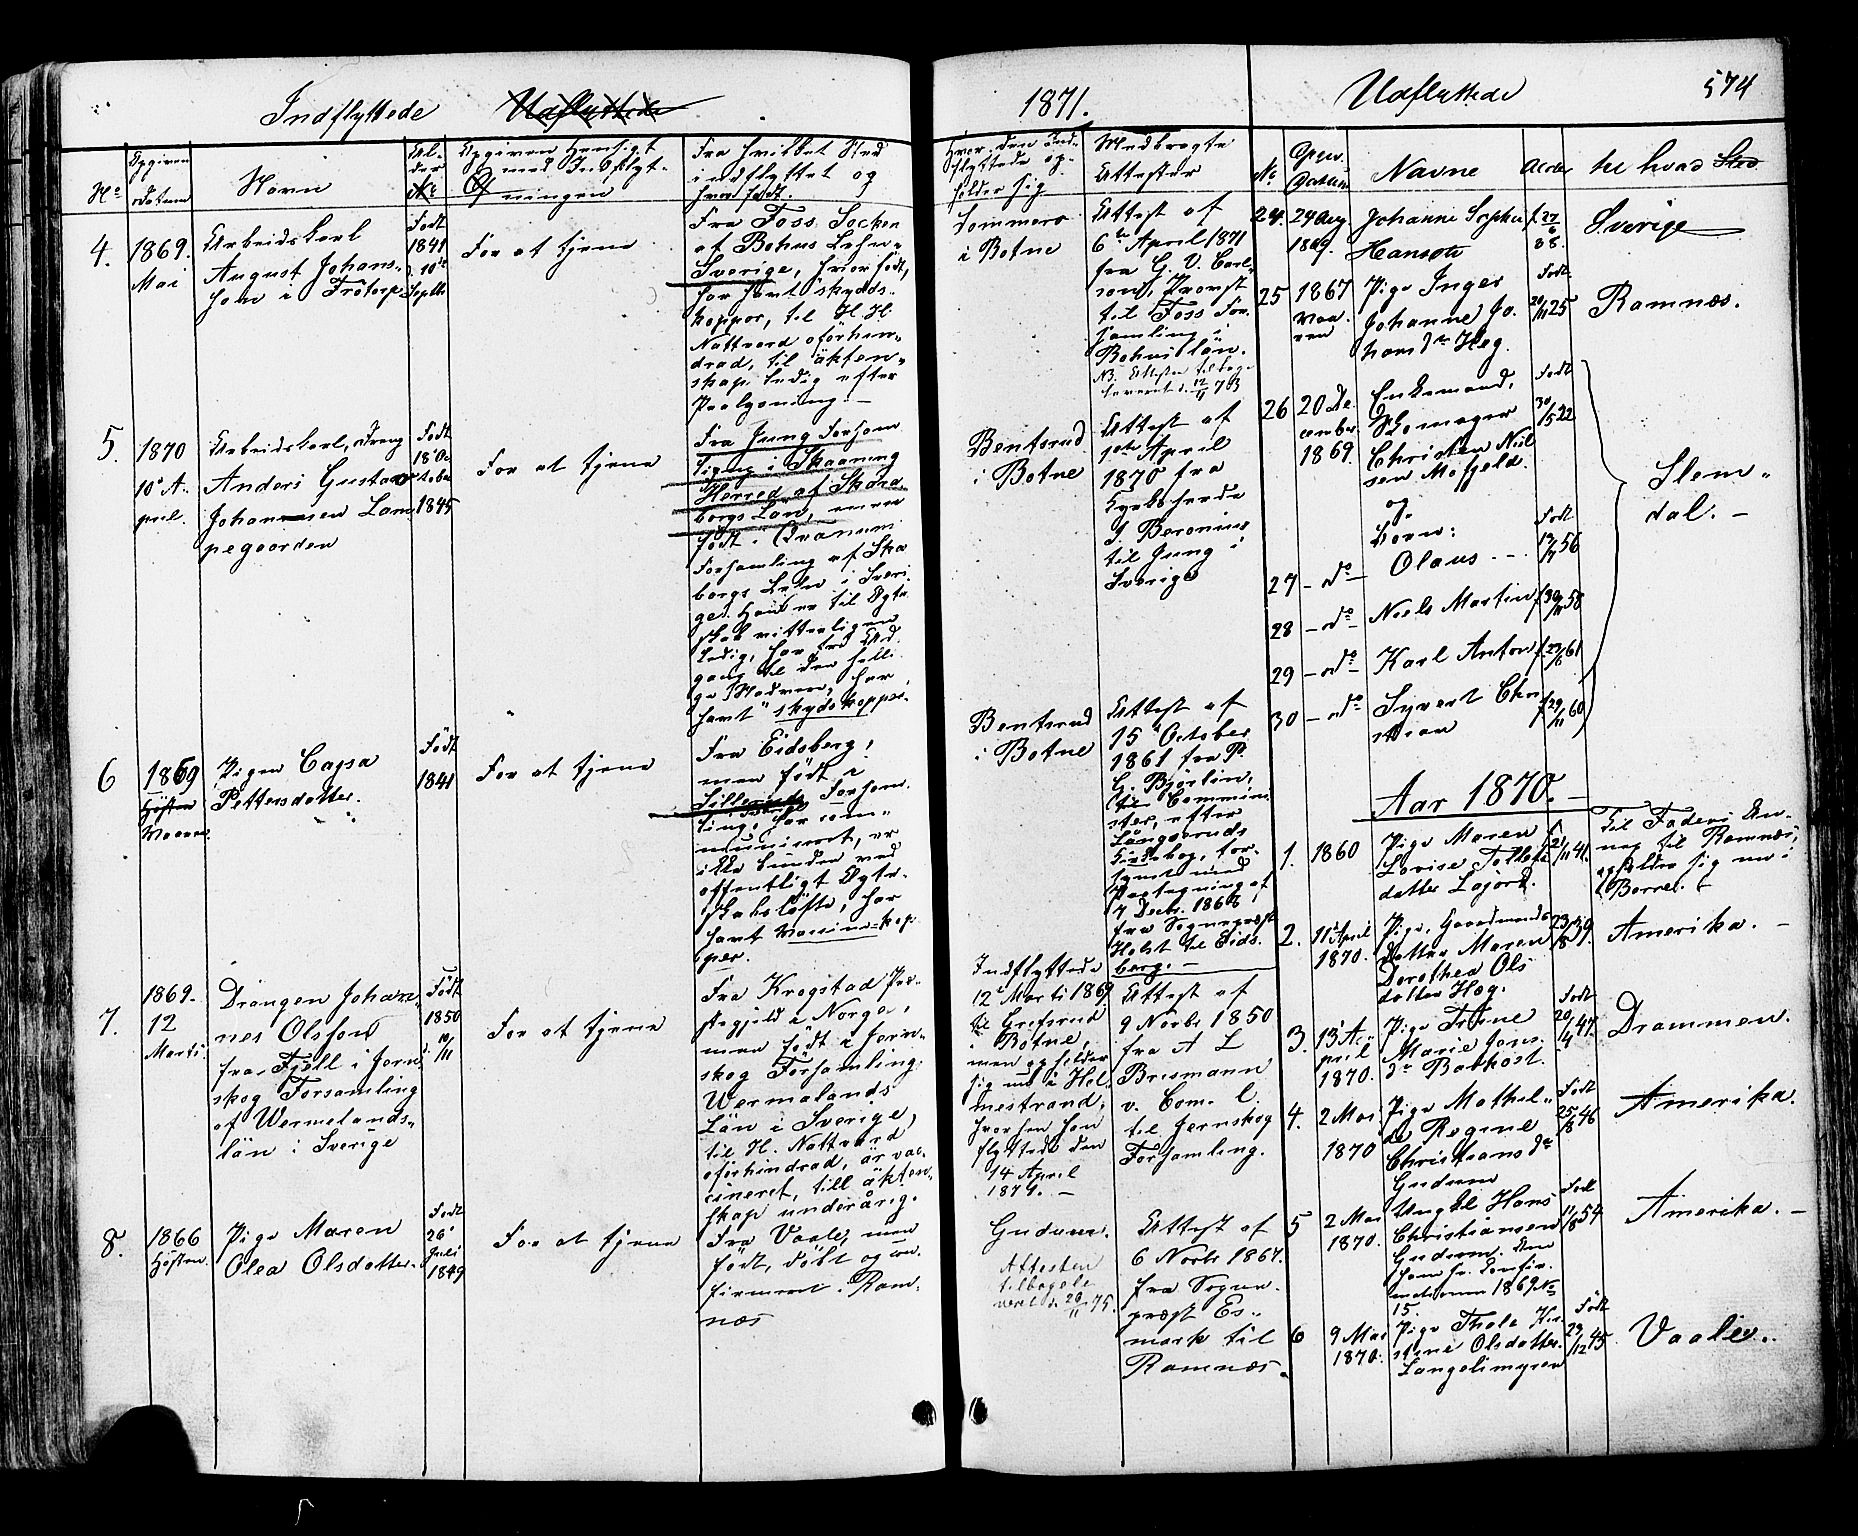 Indflyttede Udflyttede
1871.
Udflyttede
574
No
Opgiven
Datum
Navn
Al-
der
Opgiven Hensigt
med Indflyt-
ningen
Fra hvilket Sted
indflyttet og
hvor født.
Hvor den Ind-
flyttede op-
holder sig
Medbragte
Attester
4.
1869.
Mai
Arbeidskarl
August Johans-
son i Trötorp
Født
1841
d. 10de
Septbr
For at tjene
Fra Foss Socken
af Bohus Lehn
Sverige, hvor født,
har havt skydds-
koppor, til H. H.
Nattvard oförhin-
drad, till äkten-
skap ledig efter
Paalysning. -
Sommero
i Botne
Attest af
6te April 1871
fra G. V. Carl-
sond, Provst
til Foss For
samling i
Bohus län.
NB. Attesten tilbage
leveret d. 12/11 73
5.
1870
10de A-
pril.
Arbeidskarl, Dreng
Anders Gustav
Johannesen Lam-
pegaarden
Født
18 Oc
tober
1845
For at tjene
Fra Jung Forsam
ling i Skaaning
Herred af Skara-
borgs Län, men
født i Qvanum
Forsamling af Ska
borgs Lehn i Sveri
ge. Han er til Ægte
skab vitterligen
ledig, har fri Ad-
gang til den helli
ge Nadvere, har
havt "skydskoppor.
Bentsrud
i Botne
Attest af
1ste April
1870 fra
Kyrkoherde
S. Beronius
til Jung i
Sverige
6
1869
Høsten
Vaaren
Pigen Cajsa
Pettersdotter.
Født
1841
For at tjene
Fra Eidsberg,
men født i
Sillerud Forsam
ling, har com-
municeret, er
ikke bunden ved
offentligt Ægte-
skabsløfte, har
havt Vaccine-kop
per.
Bentsrud
i Botne
Attest af
15 October
1861 fra P.
G. Björlin,
til Commini
ster, efter
Långseruds
Kirkebog, for-
synet med
Paategning af
7 Decbr. 1868
fra Sognepræst
Holst til Eids-
berg. -
7.
1869.
12
Marti
Drengen Johan-
nes Olsson
fra Fjöll i Jern
skog Forsamling
af Wermelands-
län i Sverige
Født
1850
10/11
For at tjene
Fra Krogstad Præ-
stegjeld i Norge,
men født i Jern-
skog Församling
Wermalands
Län i Sverige,
til H. Nattvard
oförhindrad, är vac-
cineret, till äkten-
skap underårig.
Indflyttede
12 Marti 1869
til Grefsrud
i Botne,
men opholder
sig nu i Hol
mestrand,
hvorhen han
flyttede den
14 April
1879. -
Attest af
9 Novbr 1850
fra A L
Brismann
v. Com. l.
til Jernskog
Forsamling.
8.
1866
Høsten.
Pige Maren
Olea Olsdatter.
Født
26
Juli
1849
For at tjene
Fra Vaale, men
født, døbt og con-
firmeret i Ram-
næs
Gudum.
Attesten
tilbagele
veret d. 20/11 75.
Attest af
6 Novbr 1867.
fra Sogne-
præst Es-
mark til
Ramnæs.
No.
Opgiv.
Datum
Navne
Alder
til hvad Sted
24.
24 Aug
1869.
Johanne Sophie
Hansdtr
f. 27/6
38.
Sverige
25
1867
Vaa-
ren
Pige Inger
Johanne Jo-
hansdtr Heg.
Født
20/11 25
Ramnæs.
26
20 De
cember
1869.
Enkemand,
Skomager
Christen Niel
sen Mofjeld.
og
Børn:
Født
30/5 22
27
- do -
Olaus -
Født
12/7 56
28
- do -
Niels Martin
f. 30/11 58
29
- do -
Karl Anton
f. 23/6 61
30
- do -
Syvert Chri
stian
f. 29/11 60
Slem-
dal. -
Aar 1870. -
1.
1860
Pige Maren
Lovise Tollefs
datter Lajord.
f. 21/11 41.
til Faderen An-
nex til Ramnæs,
opholder sig nu i
Borre. -
2.
11te April
1870.
Pige, Gaardmands
Datter Maren
Dorothea Ols
datter Høg.
23/8 39.
Amerika. -
3.
13 A-
pril
1870.
Pige Trine
Marie Jons-
dtr Bækkøst.
Født
20/4 47.
Drammen.
4.
2 Mai
1870
Pige Mathil-
de Regine
Christiansdtr
Gudum
Født
25/8 46
Amerika.
5
2 Mai
1870.
Ungkl Hans
Christiansen
Gudum. Den
som fr. Confir-
mationen 1869 No
15.
Født
11/8 54
Amerika. -
6
9 Mai
1870.
Pige Thale Kir-
stine Olsdatter
Langelimyren
Født
29/12 45
Vaale.